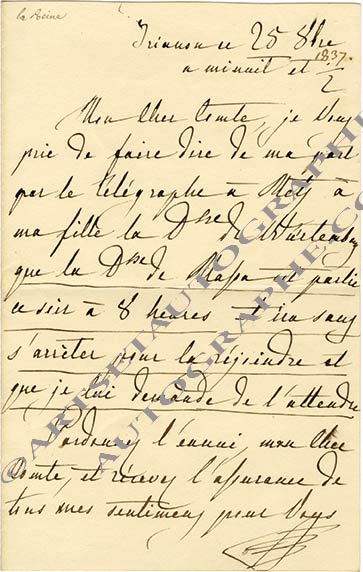 la Reine
Trianon ce 25 8bre
1837.
a minuit et 1/2
Mon cher Comte, je vous
prie de faire dire de ma part
par le télégraphe à Metz à
ma fille la Dsse de Würtemberg
que la Dsse de Massa est partie
ce soir à 8 heures et ira sans
s'arrêter pour la rejoindre et
que je lui demande de l'attendre
Pardonnez l'ennui, mon cher
Comte, et recevez l'assurance de
tous mes sentimens pour Vous
©ARTSETAUTOGRAPHE.COM